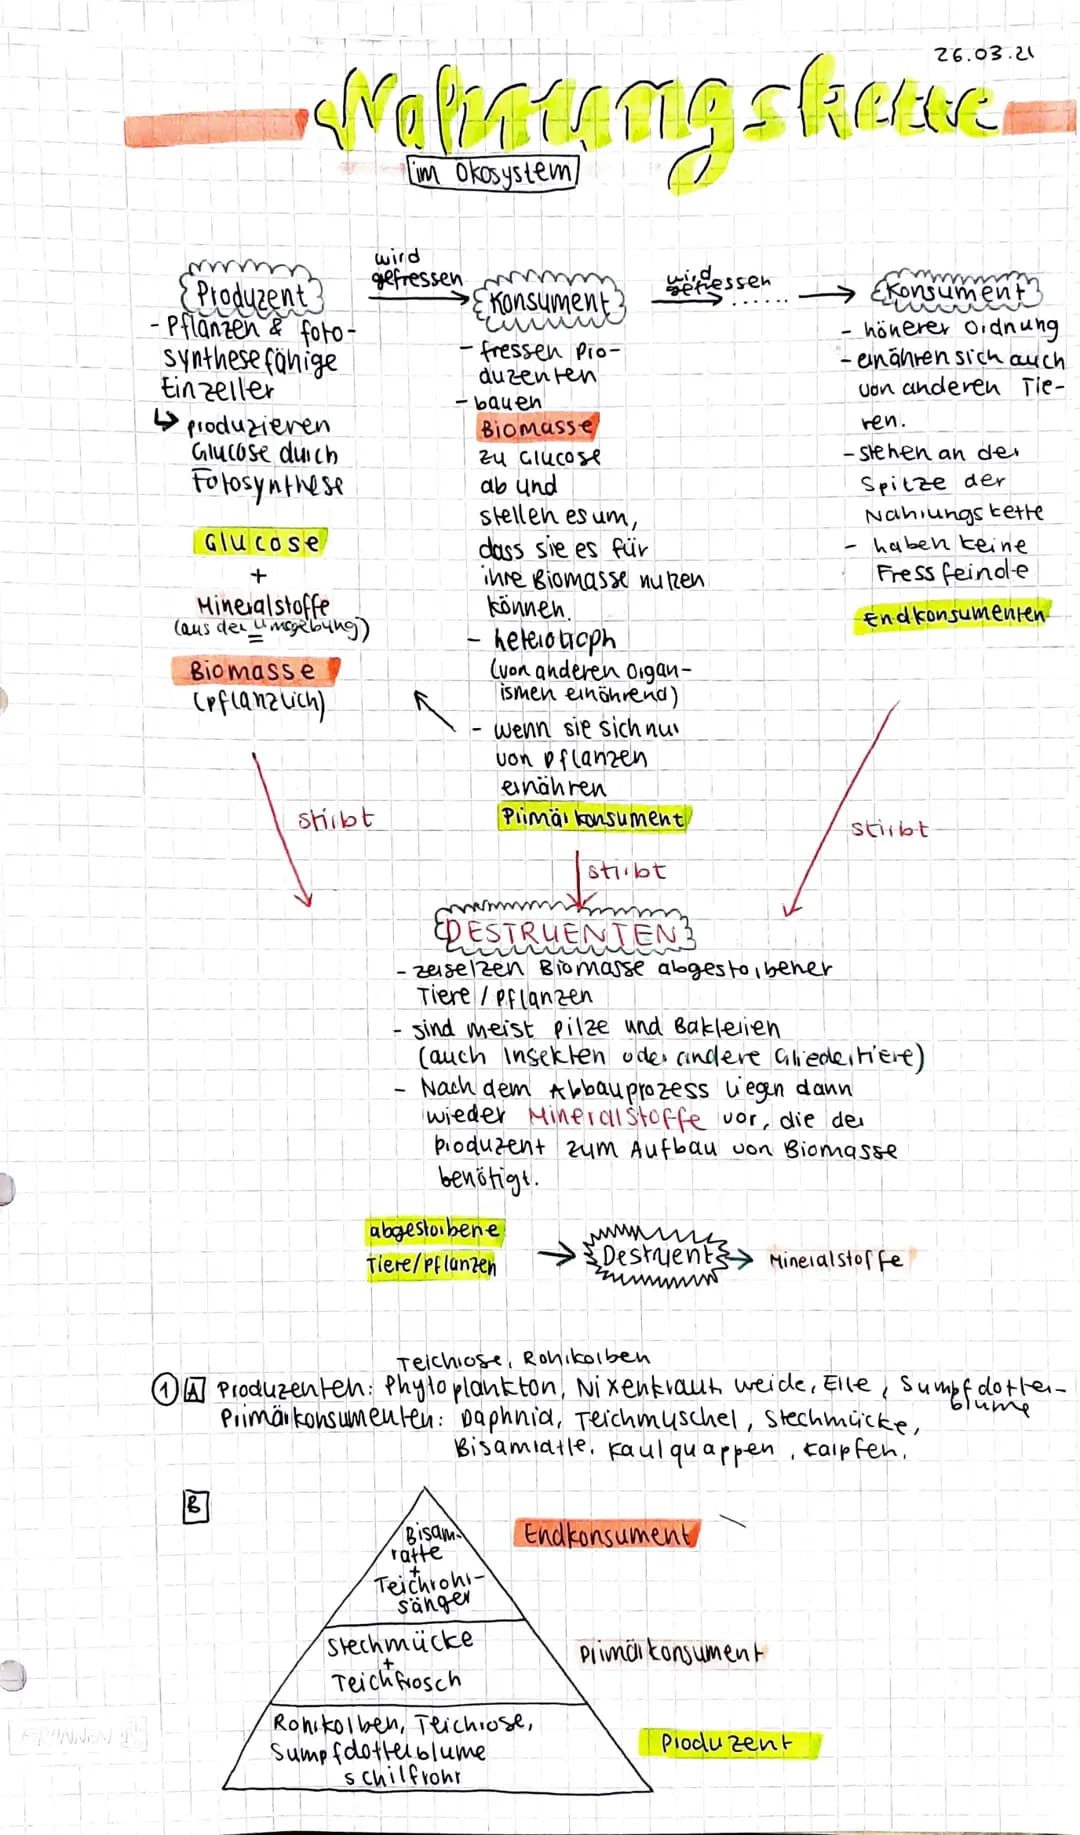 26.03.21
Nahrungskette
im Ökosystem
wird
gefressen
wird
gefressen
......
Produzent
- Pflanzen & foto-
synthesefähige
Einzeller
↳ produzieren
Glucose durch
Fotosynthese
Glucose
+
Mineralstoffe
(aus der Umgebung)
Biomasse
(pflanzlich)
Konsument
- fressen Pro-
duzenten
- bauen
Biomasse
zu Glucose
ab und
stellen es um,
dass sie es für
ihre Biomasse nutzen
können.
- heterotroph
(von anderen Organ-
ismen ernährend)
- wenn sie sich nur
von Pflanzen
ernähren
Primärkonsument
Konsument
- höherer Ordnung
- ernähren sich auch
von anderen Tie-
ren.
- stehen an der
Spitze der
Nahrungskette
- haben keine
Fressfeinde
Endkonsumenten
stirbt
stirbt
stirbt
DESTRUENTEN
- zersetzen Biomasse abgestorbener
Tiere / Pflanzen
- sind meist Pilze und Bakterien
(auch Insekten oder andere Gliedertiere)
- Nach dem Abbauprozess liegen dann
wieder Mineralstoffe vor, die der
Produzent zum Aufbau von Biomasse
benötigt.
abgestorbene
Tiere/Pflanzen
→ Destruent → Mineralstoffe
Teichrose, Rohrkolben
① A Produzenten: Phytoplankton, Nixenkraut, Weide, Erle, Sumpfdotter-
blume
Primärkonsumenten: Daphnia, Teichmuschel, Stechmücke,
Bisamratte, Kaulquappen, Karpfen.
B
Bisam-
ratte
+
Teichrohr-
sänger
Endkonsument
Stechmücke
+
Teichfrosch
Primärkonsument
Rohrkolben, Teichrose,
Sumpfdotterblume
Schilfrohr
Produzent